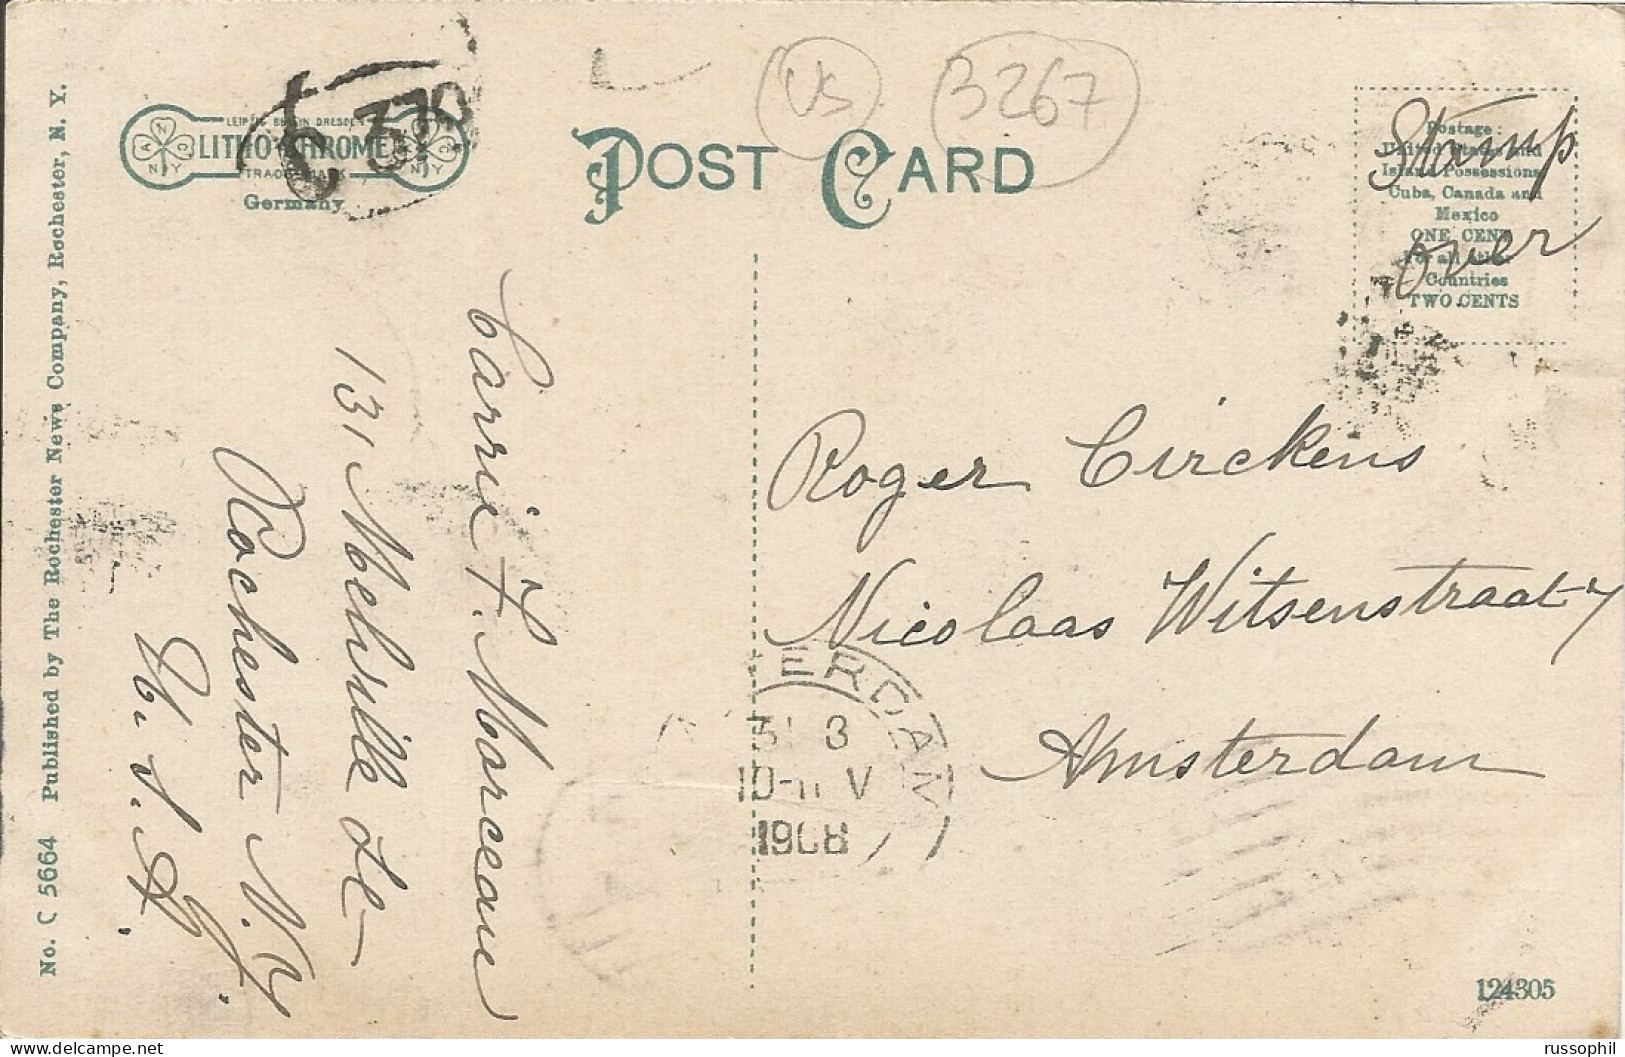 No. C 5664 Published by The Rochester News Company, Rochester, N. Y.
LEIPZIG BERLIN DRESDEN
LITHO-CHROME
TRADE MARK
Germany
370
POST CARD
US
3267
Postage:
United States and
Island Possessions
Cuba, Canada and
Mexico
ONE CENT
For all other
Countries
TWO CENTS
Stamp
over
Carrie F. Marceau
131 Melville St
Rochester N.Y.
U.S.A.
Roger Circkens
Nicolaas Witsenstraat 7
Amsterdam
ERDAM
31 3
10-11 V
1908
124305
russophil